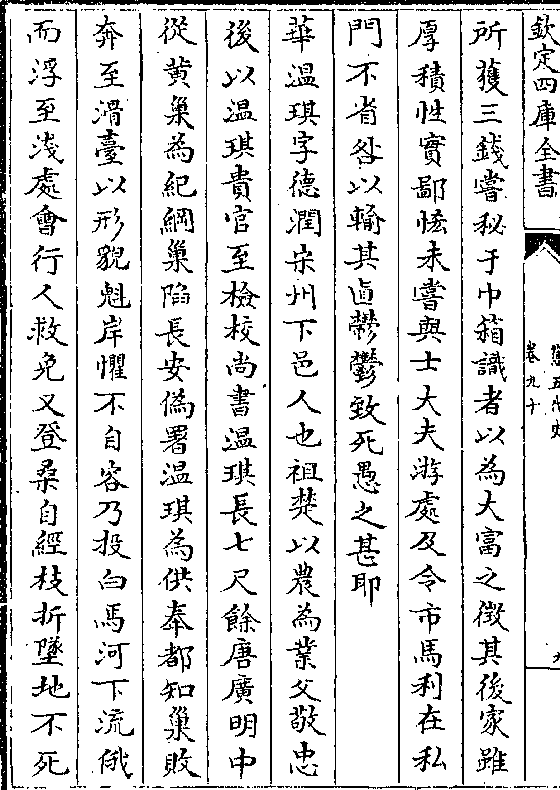 欽定四庫全書
舊五代史
卷九十
九
所獲三錢嘗秘于巾箱識者以為大富之徵其後家雖
厚積性實鄙悋未嘗與士大夫游處及令市馬利在私
門不省咎以輸其直鬱鬱致死愚之甚耶
華温琪字德潤宋州下邑人也祖楚以農為業父敬忠
後以温琪貴官至檢校尚書温琪長七尺餘唐廣明中
從黄巢為紀綱巢陷長安偽署温琪為供奉都知巢敗
奔至滑臺以形貌魁岸懼不自容乃投白馬河下流俄
而浮至淺處會行人救免又登桑自經枝折墜地不死